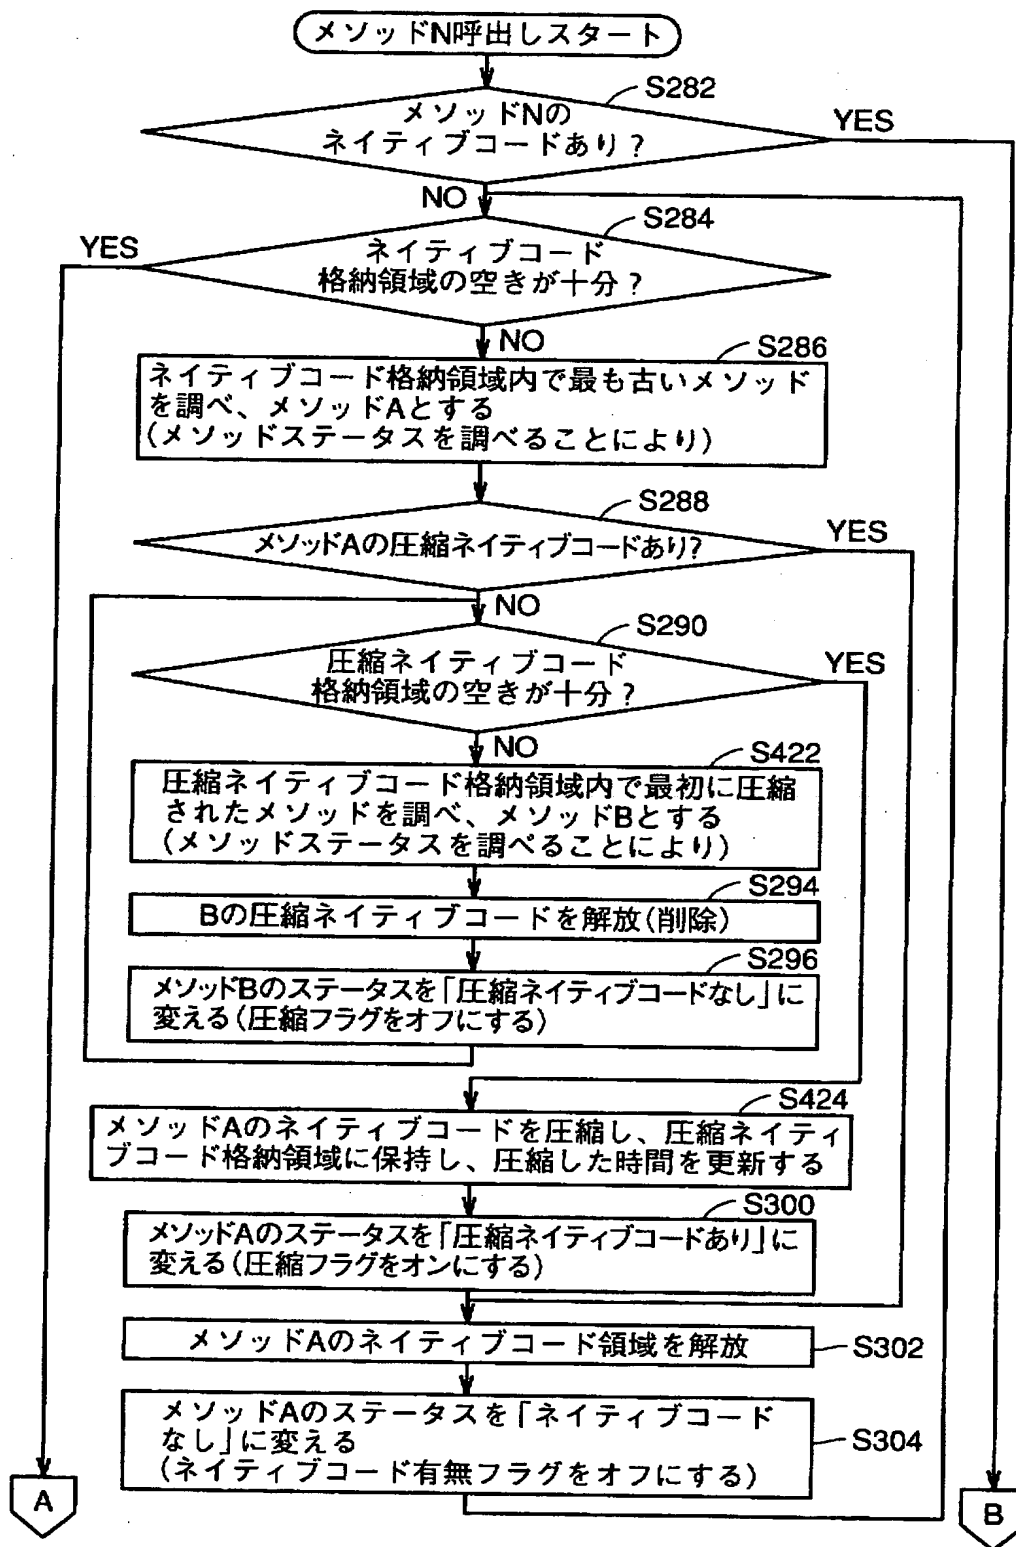 メソッドN呼出しスタート
S282
メソッドNの
ネイティブコードあり?
YES
NO
S284
YES
ネイティブコード
格納領域の空きが十分?
NO
S286
ネイティブコード格納領域内で最も古いメソッド
を調べ、メソッドAとする
(メソッドステータスを調べることにより)
S288
メソッドAの圧縮ネイティブコードあり?
YES
NO
S290
圧縮ネイティブコード
格納領域の空きが十分?
YES
NO
S422
圧縮ネイティブコード格納領域内で最初に圧縮
されたメソッドを調べ、メソッドBとする
(メソッドステータスを調べることにより)
S294
Bの圧縮ネイティブコードを解放(削除)
S296
メソッドBのステータスを「圧縮ネイティブコードなし」に
変える(圧縮フラグをオフにする)
S424
メソッドAのネイティブコードを圧縮し、圧縮ネイティ
ブコード格納領域に保持し、圧縮した時間を更新する
S300
メソッドAのステータスを「圧縮ネイティブコードあり」に
変える(圧縮フラグをオンにする)
メソッドAのネイティブコード領域を解放
S302
メソッドAのステータスを「ネイティブコード
なし」に変える
(ネイティブコード有無フラグをオフにする)
S304
A
B